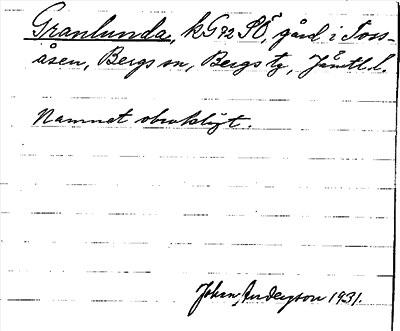 Granlunda, kG72SÖ, gård i Toss-
åsen, Bergs sn, Bergs tg, Jämtl. l.
Namnet obrukligt.
Johan Anderzson 1931.